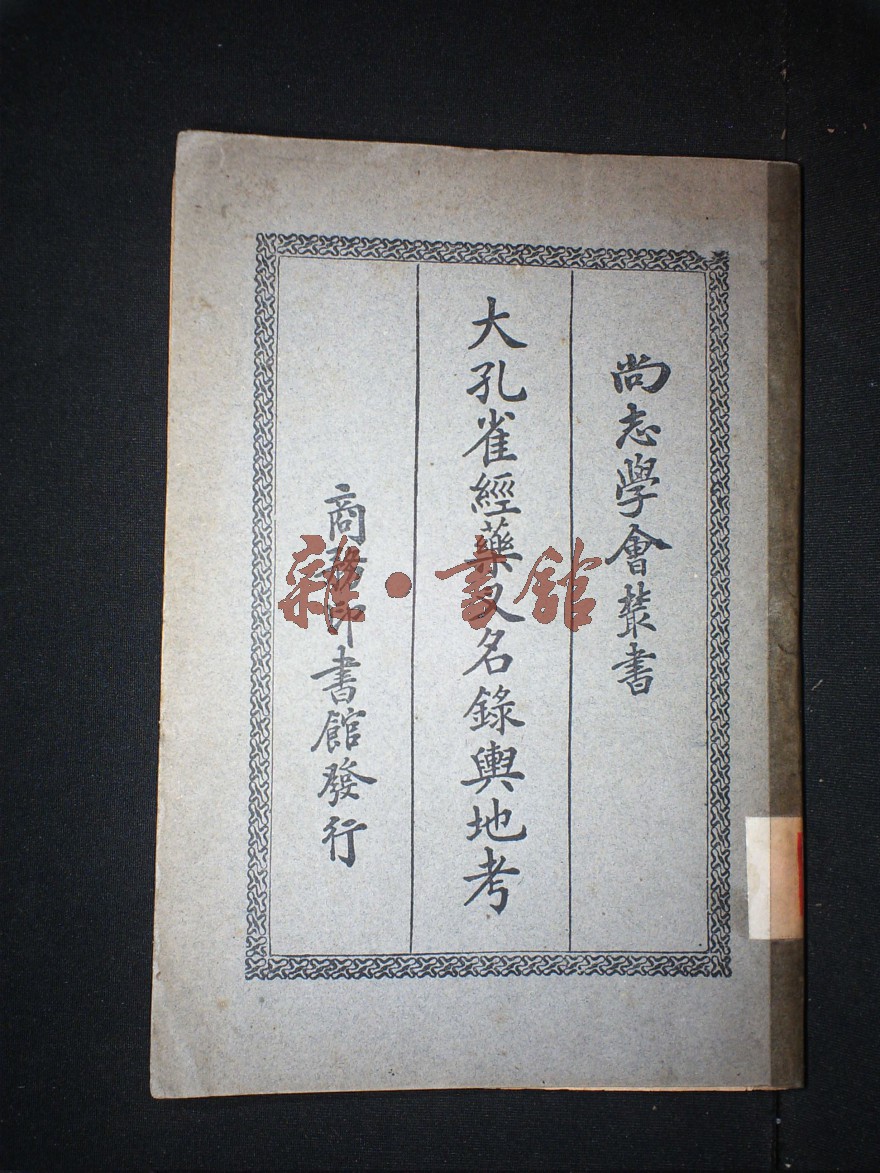 尚志學會叢書
大孔雀經藥叉名錄輿地考
商務印書館發行
雜·書館